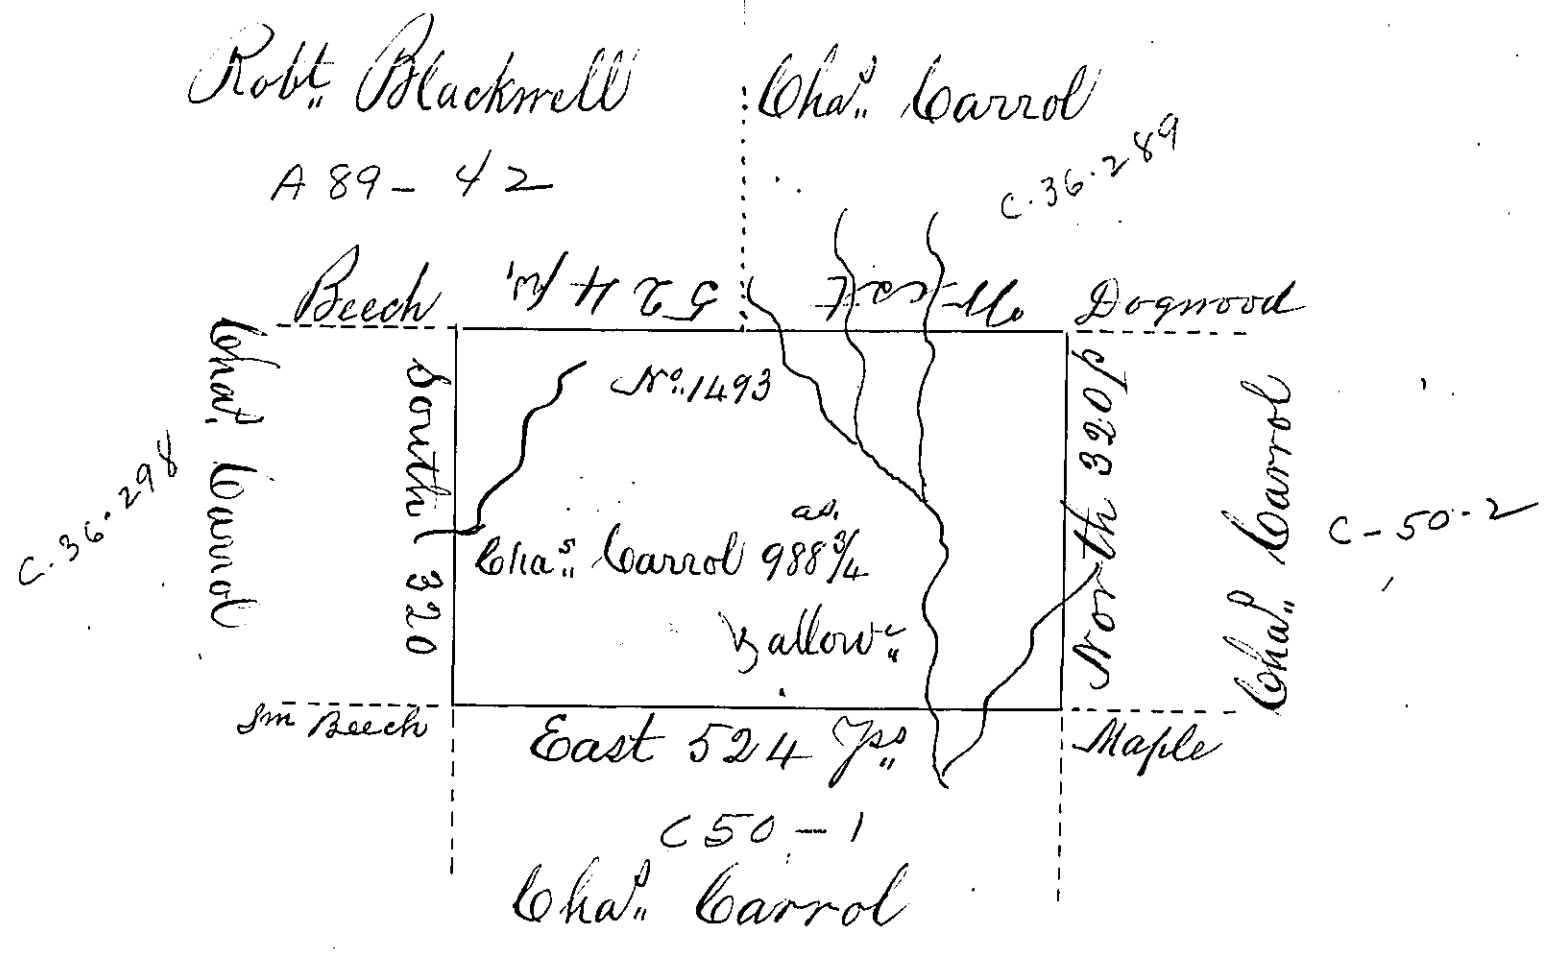 Robt. Blackwell
Chas. Carrol
A 89 - 42
C. 36. 289
Beech
West 524 ps.
Dogwood
Chas. Carrol
C. 36. 298
South 320
No. 1493
Chas. Carrol 988 3/4 as.
& allowe
North 320 p
Chas. Carrol
C - 50 - 2
Sm Beech
East 524 ps
Maple
C 50 - 1
Chas. Carrol